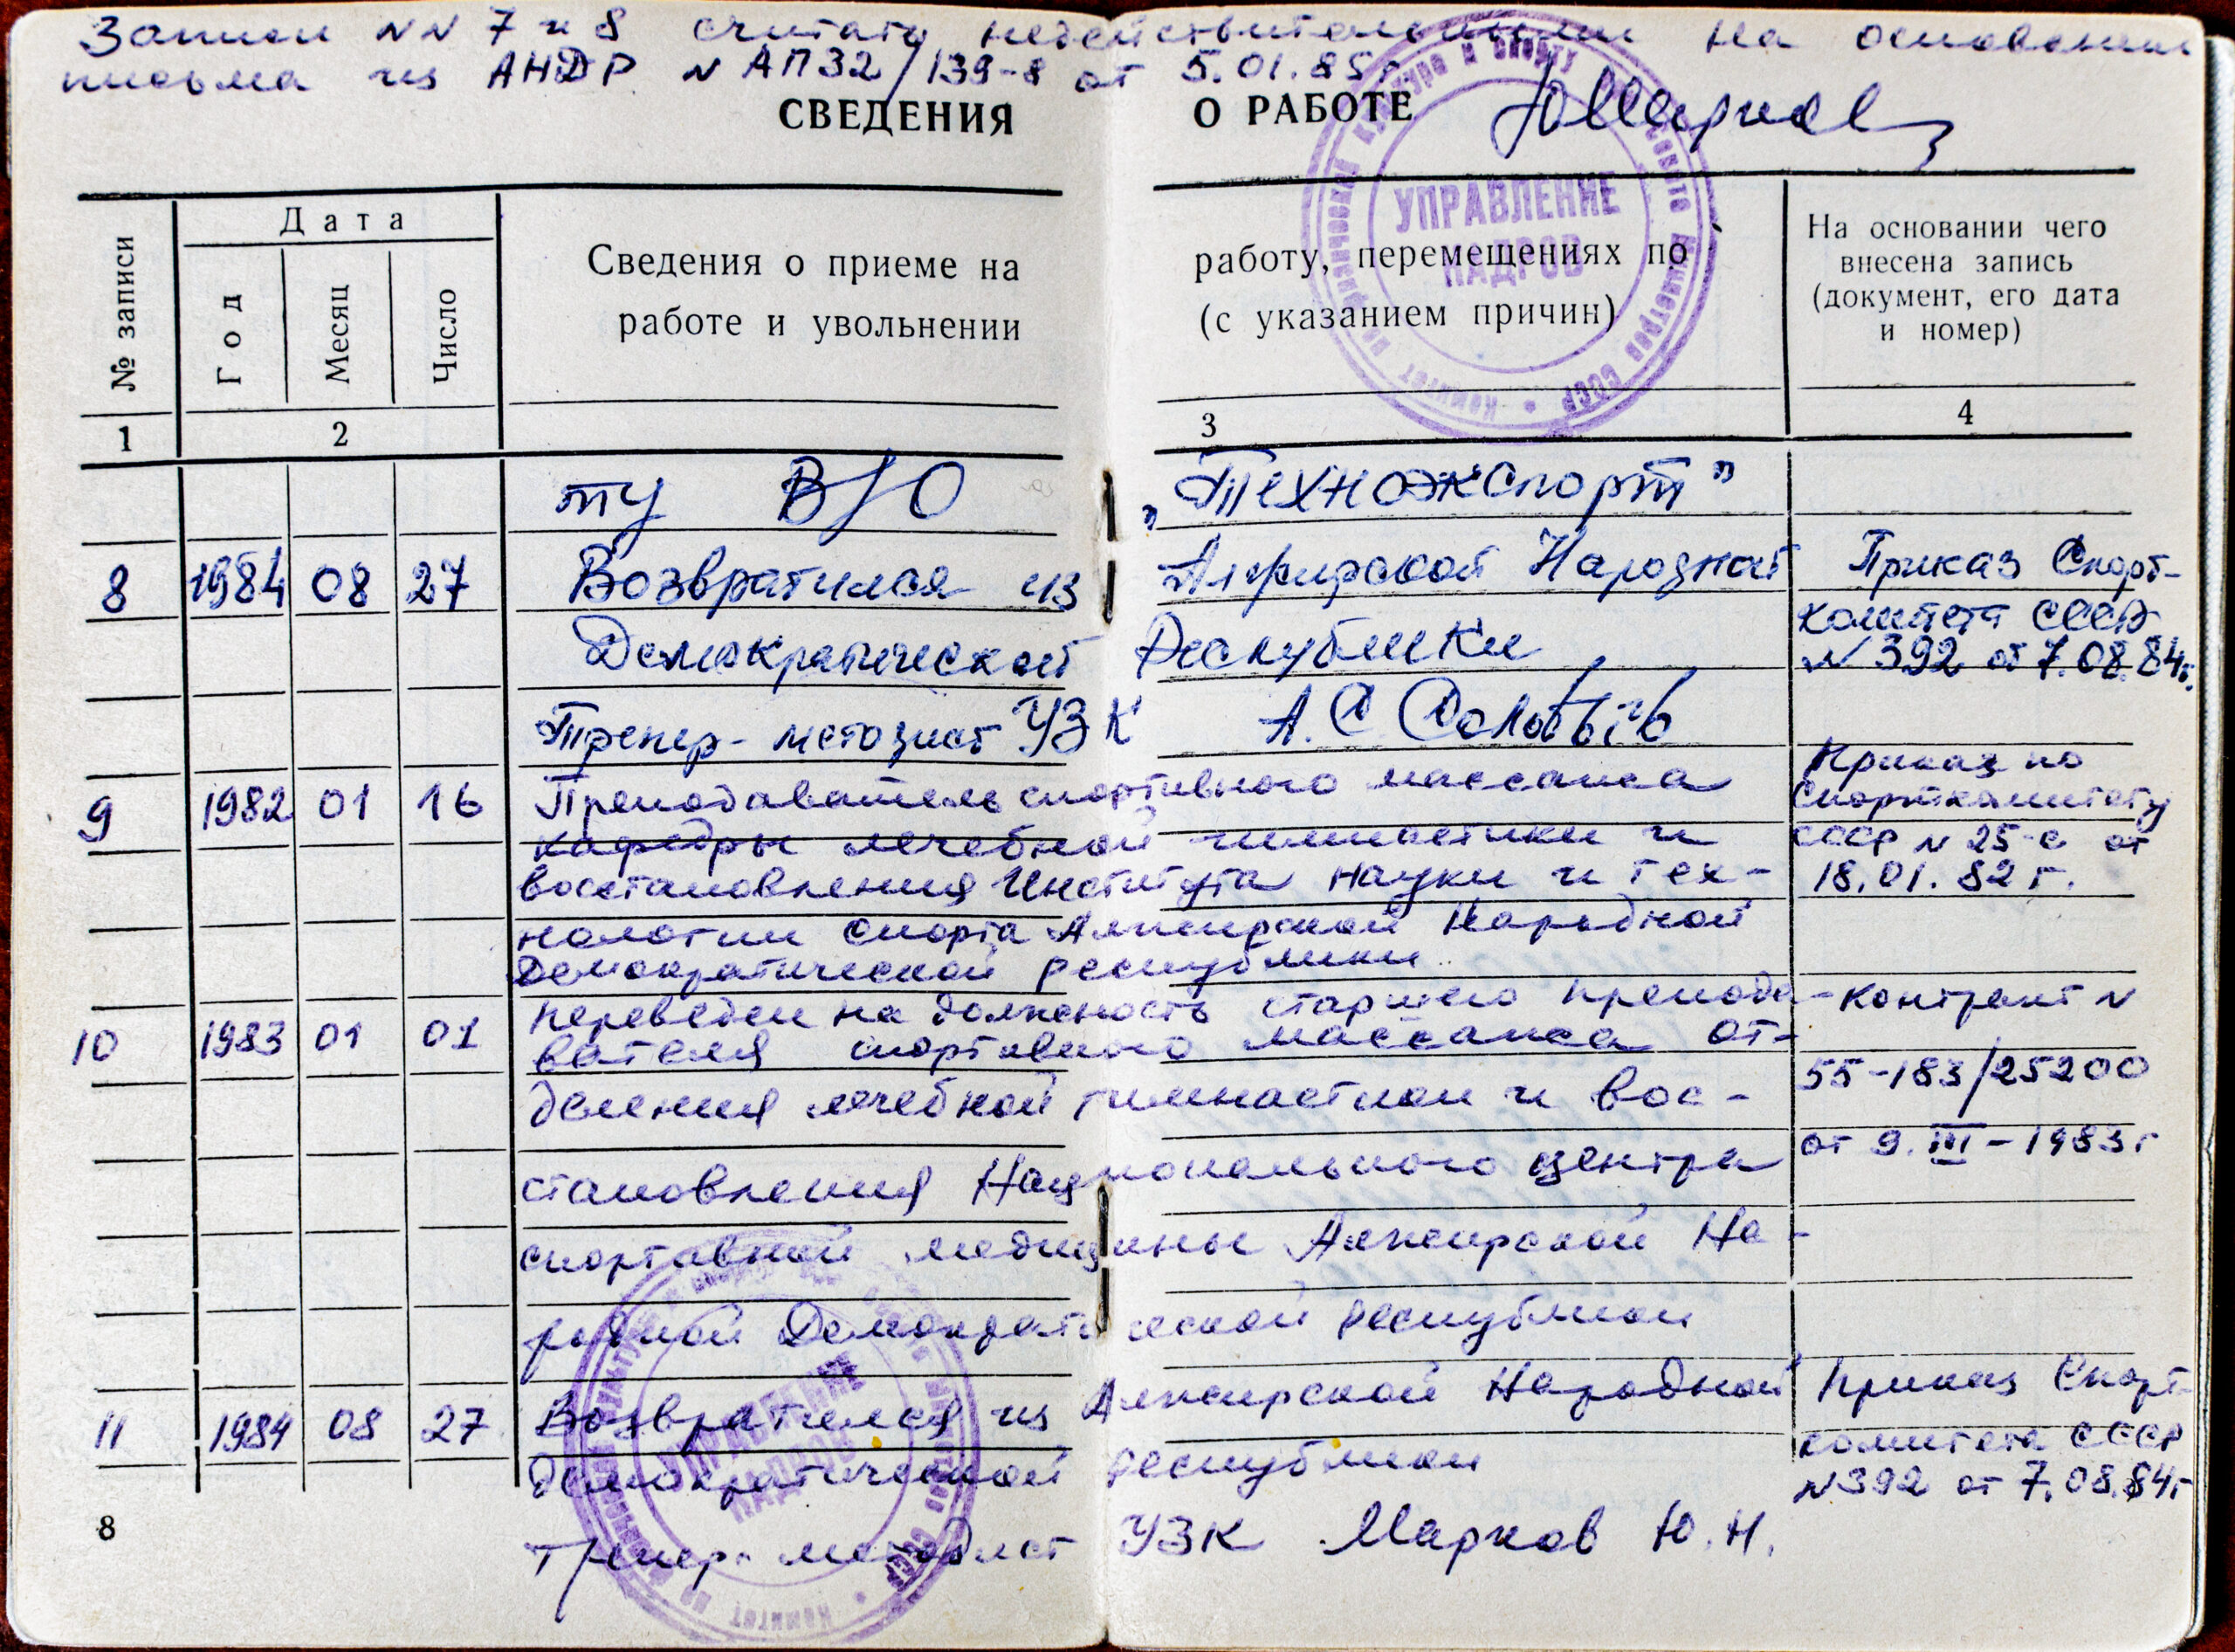 Записи NN 7 и 8 считать недействительными на основании
письма из АНДР N АП32/139-8 от 5.01.85г.
СВЕДЕНИЯ О РАБОТЕ
№ записи
Дата
Год
Месяц
Число
Сведения о приеме на работу, перемещениях по
работе и увольнении (с указанием причин)
На основании чего
внесена запись
(документ, его дата
и номер)
1 2 3 4
УПРАВЛЕНИЕ
КАДРОВ
ту В/О „Техноэкспорт"
8 1984 08 27 Возвратился из Алжирской Народной
Демократической Республики
Приказ Спорт-
комитета СССР
N 392 от 7.08.84г.
Тренер-методист УЗК А.С Соловьёв
9 1982 01 16 Преподаватель спортивного массажа
кафедры лечебной гимнастики и
восстановления Института науки и тех-
нологии спорта Алжирской Народной
Демократической республики
Приказ по
Спорткомитету
СССР N 25-с от
18.01.82г.
10 1983 01 01 Переведен на должность старшего препода-
вателя спортивного массажа от-
деления лечебной гимнастики и вос-
становления Национального центра
спортивной медицины Алжирской На-
родной Демократической республики
Контракт N
55-183/25200
от 9.III-1983г
11 1984 08 27 Возвратился из Алжирской Народной
Демократической республики
Приказ Спорт-
комитета СССР
N392 от 7.08.84г
Тренер-методист УЗК Марков Ю.Н.
УПРАВЛЕНИЕ
КАДРОВ
8